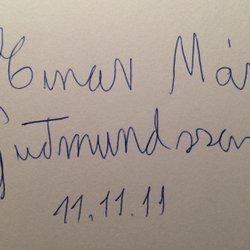 Einar Már
Guðmundsson
11.11.11